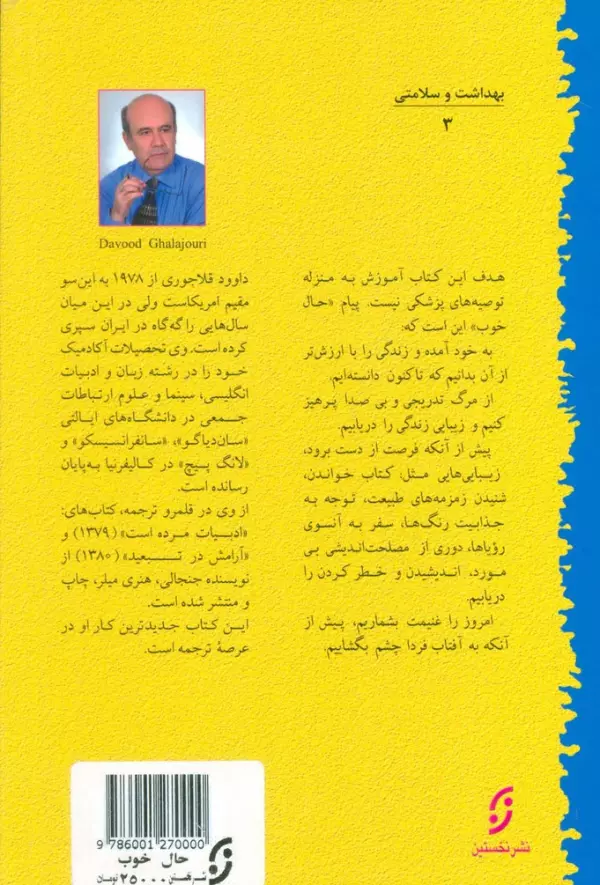 بهداشت و سلامتی
۳
هدف این کتاب آموزش به منزله
توصیه‌های پزشکی نیست. پیام «حال
خوب» این است که:
به خود آمده و زندگی را با ارزش‌تر
از آن بدانیم که تاکنون دانسته‌ایم.
از مرگ تدریجی و بی صدا پرهیز
کنیم و زیبایی زندگی را دریابیم.
پیش از آنکه فرصت از دست برود،
زیبایی‌هایی مثل: کتاب خواندن،
شنیدن زمزمه‌های طبیعت، توجه به
جذابیت رنگ‌ها، سفر به آنسوی
رؤیاها، دوری از مصلحت‌اندیشی بی
مورد، اندیشیدن و خطر کردن را
دریابیم.
امروز را غنیمت بشماریم، پیش از
آنکه به آفتاب فردا چشم بگشاییم.
Davood Ghalajouri
داوود قلاجوری از ۱۹۷۸ به این‌سو
مقیم امریکاست ولی در این میان
سال‌هایی را گه‌گاه در ایران سپری
کرده است. وی تحصیلات آکادمیک
خود را در رشته زبان و ادبیات
انگلیسی، سینما و علوم ارتباطات
جمعی در دانشگاه‌های ایالتی
«سان‌دیاگو»، «سانفرانسیسکو» و
«لانگ بیچ» در کالیفرنیا به‌پایان
رسانده است.
از وی در قلمرو ترجمه، کتاب‌های:
«ادبیات مرده است» (۱۳۷۹) و
«آرامش در تبعید» (۱۳۸۰) از
نویسنده جنجالی، هنری میلر، چاپ
و منتشر شده است.
این کتاب جدیدترین کار او در
عرصهٔ ترجمه است.
9 786001 270000
حال خوب
نشر نخستین ۲۵۰۰۰ تومان
نشر نخستین